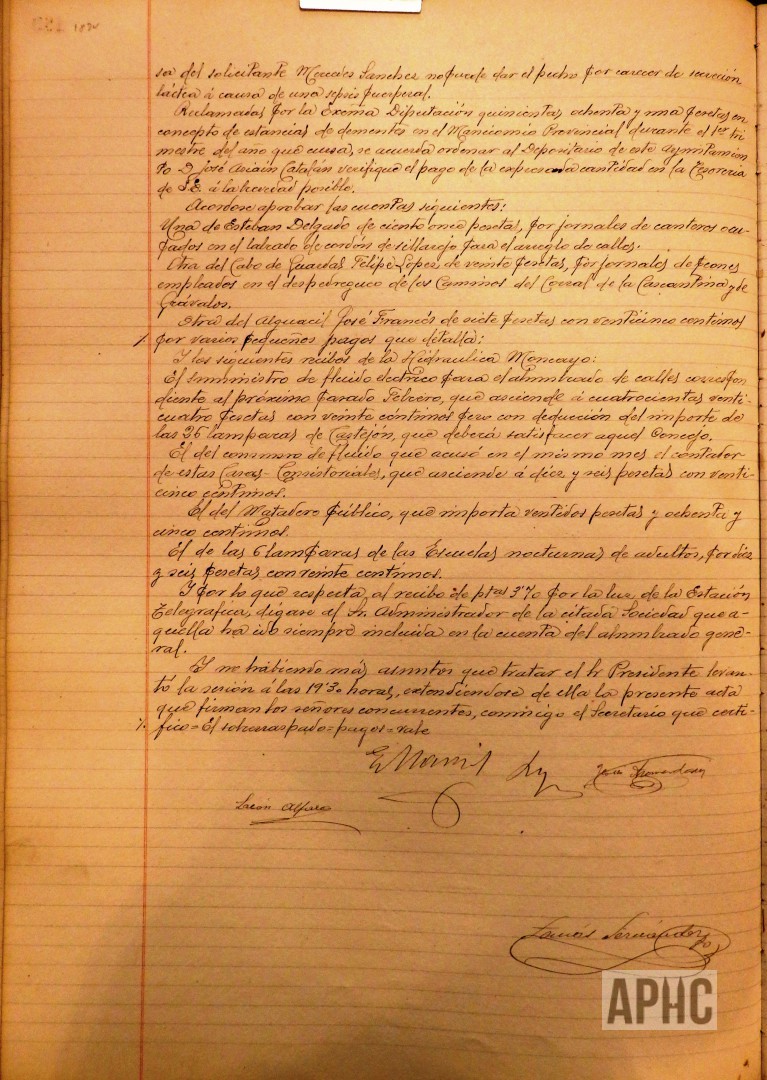 sa del solicitante Mercedes Sanchez no puede dar el pecho por carecer de secreción
láctea á causa de una sepsis puerperal.
Reclamadas por la Excma Diputación quinientas ochenta y una pesetas en
concepto de estancias de dementes en el Manicomio Provincial durante el 1er tri-
mestre del año que cursa, se acuerda ordenar al Depositario de este Ayuntamien
to D José Asiain Catalán verifique el pago de la expresada cantidad en la Tesoreria
de S.E. á la brevedad posible.
Acordose aprobar las cuentas siguientes:
Una de Esteban Delgado de ciento once pesetas, por jornales de canteros ocu-
pados en el labrado de cordón de sillarejo para el arreglo de calles.
Otra del Cabo de Guardas Felipe Lopez, de veinte pesetas, por jornales de peones
empleados en el despedregueo de los Caminos del Corral de la Cascantina y de
Grávalos.
Otra del Alguacil José Francés de siete pesetas con venticinco centimos
por varios pequeños pagos que detalla;
Y los siguientes recibos de la Hidraulica Moncayo:
El suministro de fluido electrico para el alumbrado de calles correspon
diente al próximo pasado Febrero, que asciende á cuatrocientas venti-
cuatro pesetas con veinte céntimos pero con deducción del importe de
las 26 lamparas de Castejón, que deberá satisfacer aquel Concejo.
El del consumo de fluido que acusó en el mismo mes el contador
de estas Casas-Consistoriales, que asciende á diez y seis pesetas con venti-
cinco céntimos.
El del Matadero público, que importa ventidos pesetas y ochenta y
cinco centimos.
El de las 6 lamparas de las Escuelas nocturnas de adultos, por diez
y seis pesetas con veinte centimos.
Y por lo que respecta al recibo de ptas 3'70 por la luz de la Estación
Telegrafica, digase al Sr. Administrador de la citada Sociedad que a-
quella ha ido siempre incluida en la cuenta del alumbrado gene-
ral.
Y no habiendo más asuntos que tratar el Sr Presidente levan-
tó la sesión á las 19'30 horas, extendiendose de ella la presente acta
que firman los señores concurrentes, conmigo el Secretario que certi-
fico=El sobrerraspado=pagos=vale
León Alfaro
APHC